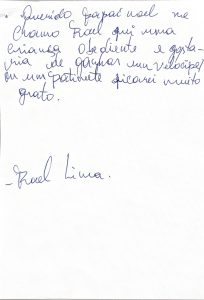 • Querido papai noel me
chamo Kael qui uma
criansa obediente e gosta-
ria de ganhar um velocipel
ou um patinete ficarei muito
grato.
- Kael Lima.